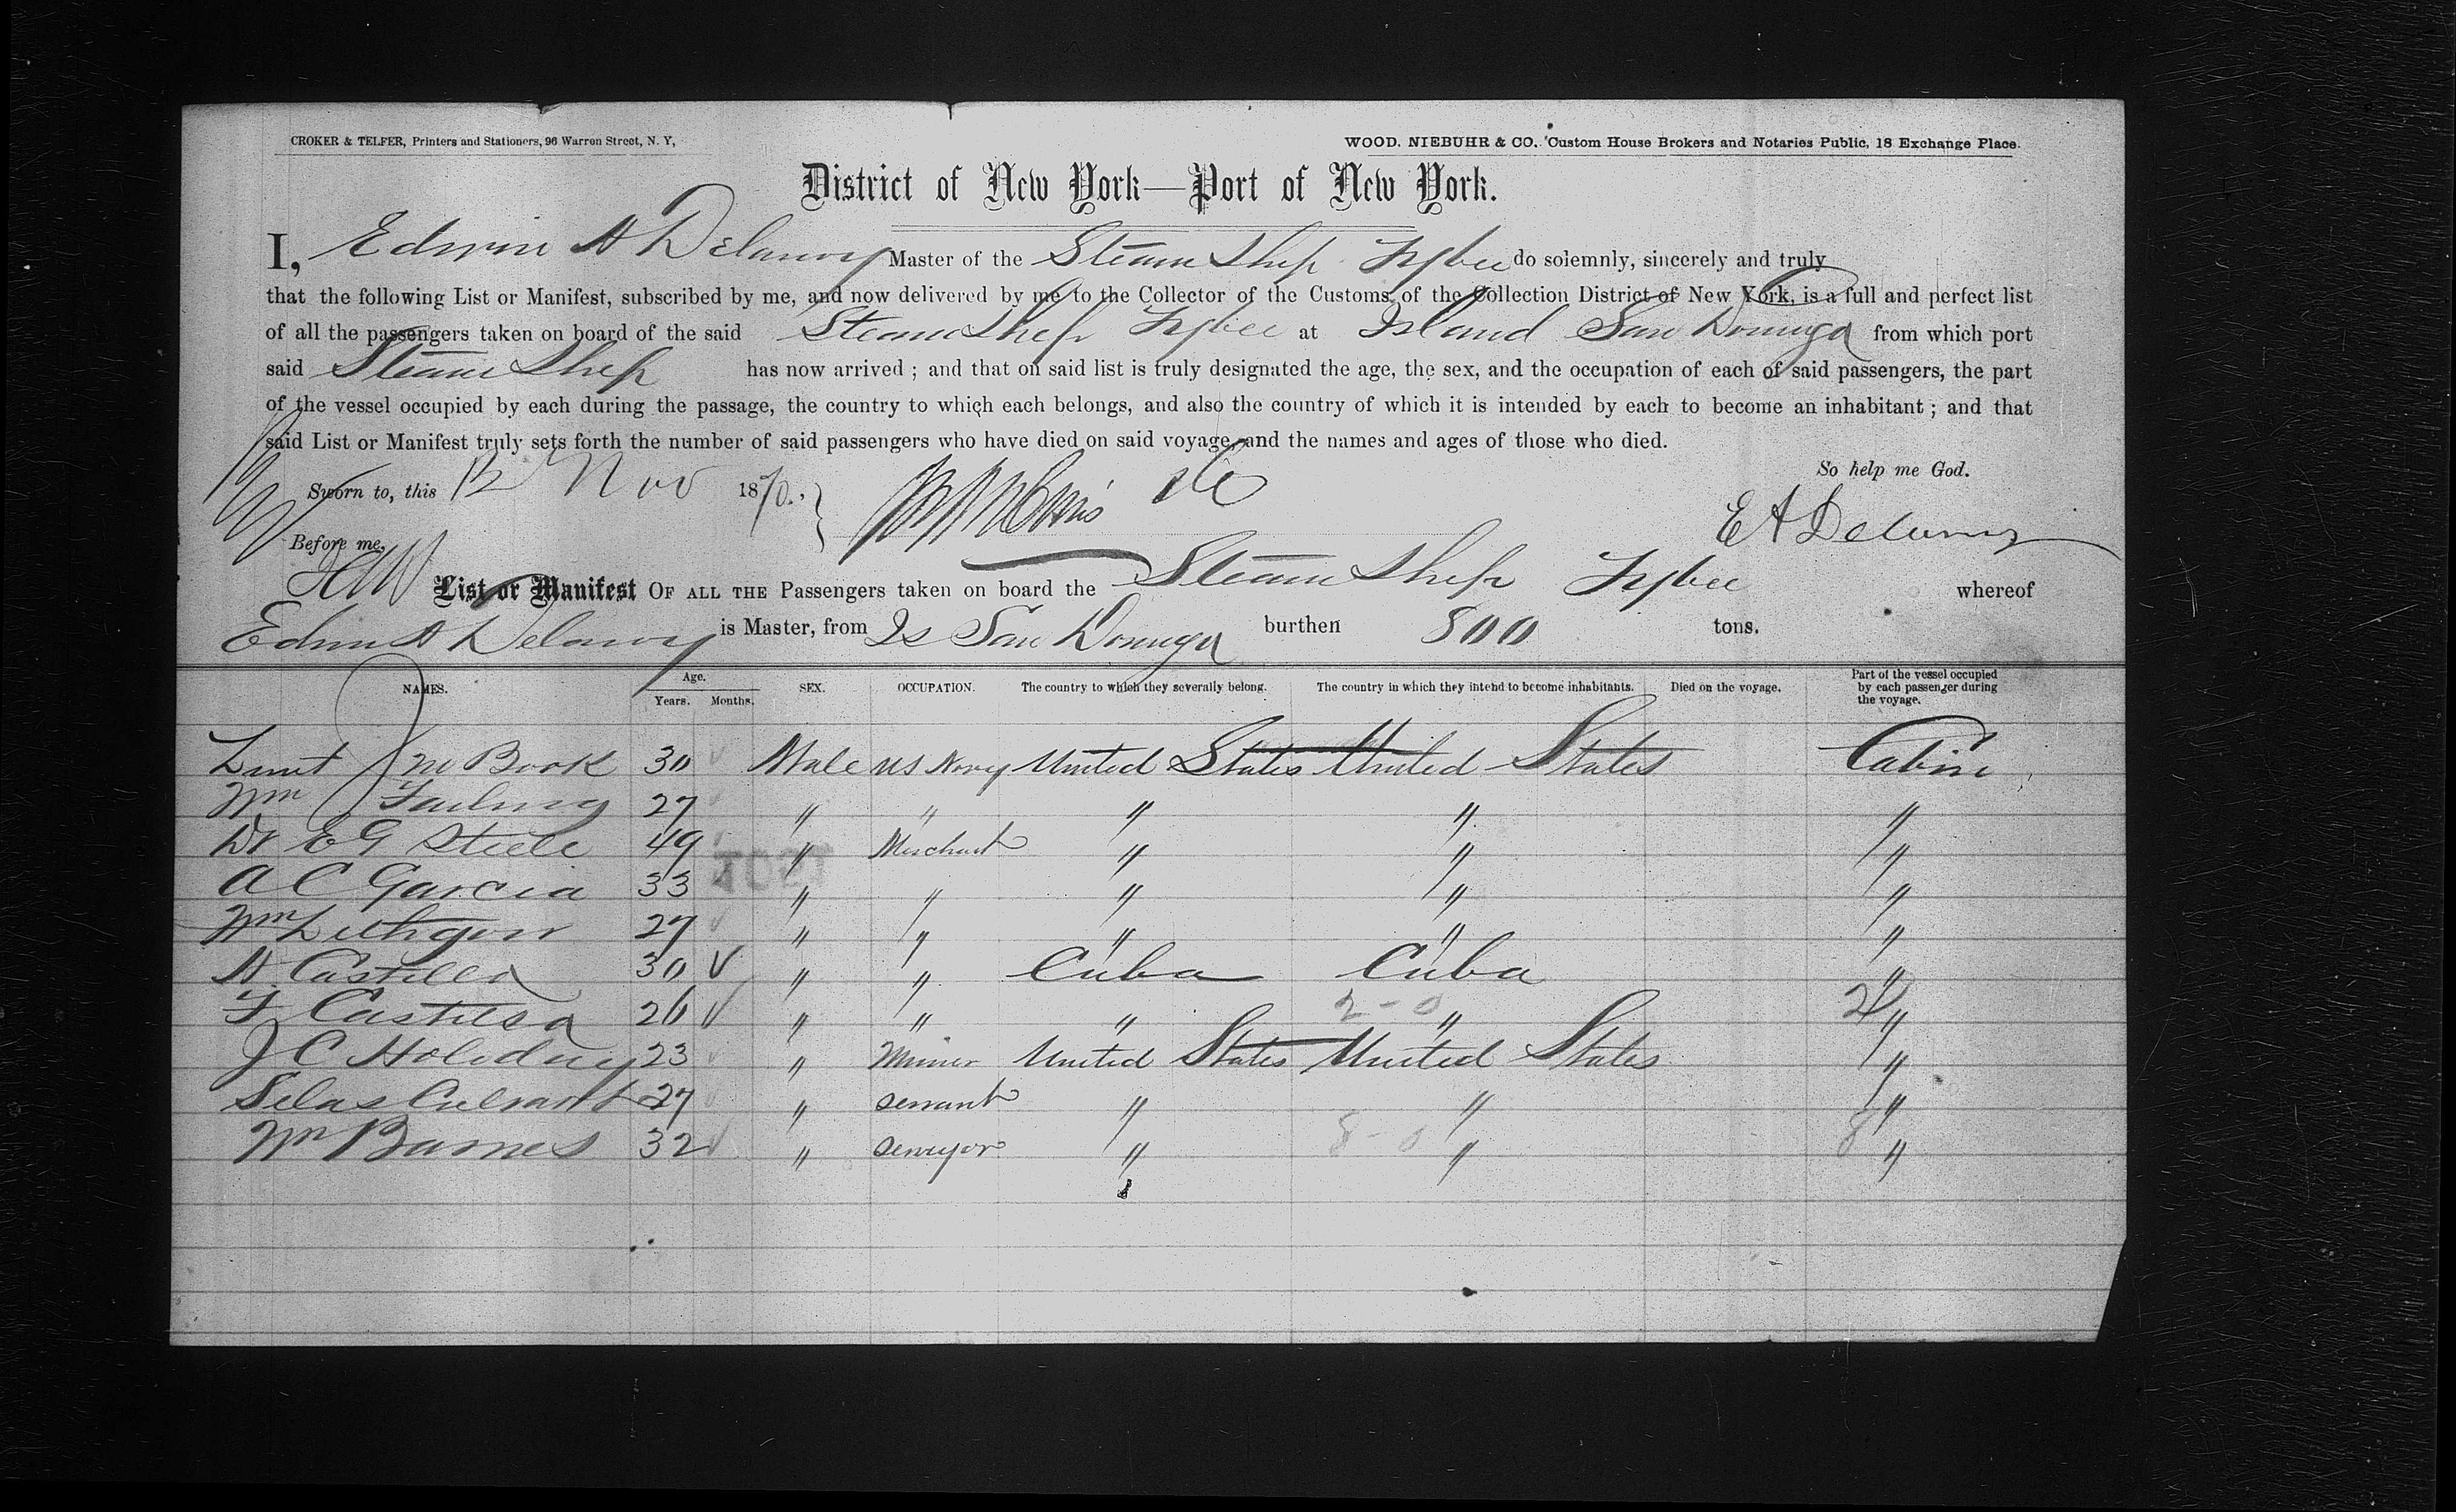 CROKER & TELFER, Printers and Stationers, 96 Warren Street, N. Y,
WOOD. NIEBUHR & CO. Custom House Brokers and Notaries Public, 18 Exchange Place.
District of New York—Port of New York.
I, Edwin A Delanoy Master of the Steam Ship Tybee do solemnly, sincerely and truly
that the following List or Manifest, subscribed by me, and now delivered by me to the Collector of the Customs of the Collection District of New York, is a full and perfect list
of all the passengers taken on board of the said Steam Ship Tybee at Island San Domingo from which port
said Steam Ship has now arrived ; and that on said list is truly designated the age, the sex, and the occupation of each of said passengers, the part
of the vessel occupied by each during the passage, the country to which each belongs, and also the country of which it is intended by each to become an inhabitant ; and that
said List or Manifest truly sets forth the number of said passengers who have died on said voyage, and the names and ages of those who died.
So help me God.
Sworn to, this 12 Nov 1870.
E A Delanoy
Before me,
List or Manifest OF ALL THE Passengers taken on board the Steam Ship Tybee whereof
Edwin A Delanoy is Master, from Is San Domingo burthen 800 tons.
NAMES. Age. Years. Months. SEX. OCCUPATION. The country to which they severally belong. The country in which they intend to become inhabitants. Died on the voyage. Part of the vessel occupied by each passenger during the voyage.
Book 30 Male US Navy United States United States Cabin
Wm 27 " " " " "
Dr E G Steele 49 " Merchant " " "
A C Garcia 33 " " " " "
Wm Lithgow 27 " " " " "
A Castillo 30 " " Cuba Cuba "
F Castillo 26 " " " 2-0 " 2 "
J C Holiday 23 " Miner United States United States "
Silas 27 " servant " " "
Wm Barnes 32 " " 8-0 " 8 "